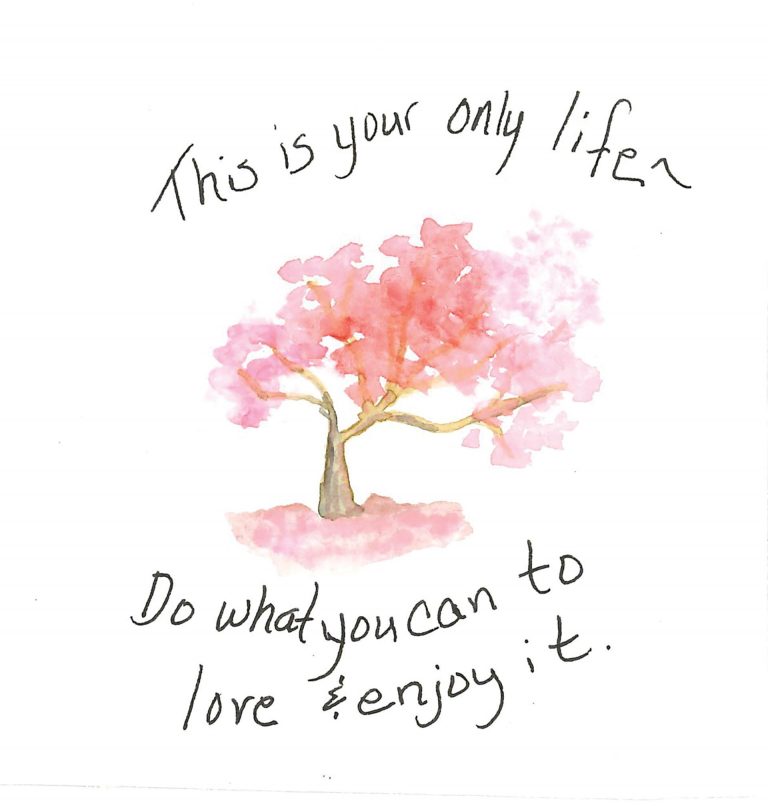 This is your only life~
Do what you can to
love & enjoy it.